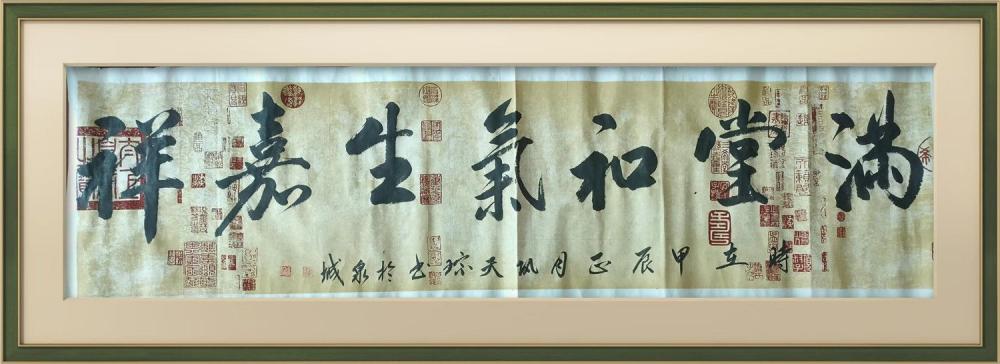 满堂和氣生嘉祥
時在甲辰正月凯天琮书於泉城